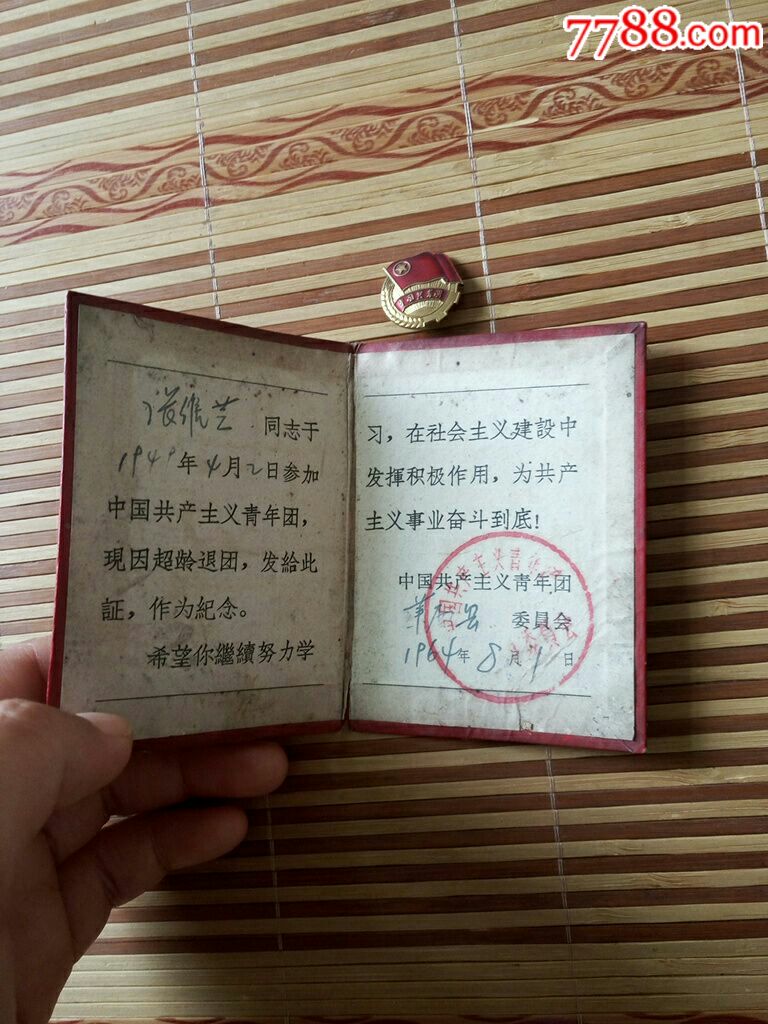 7788.com
张维芝 同志于
1949年4月2日参加
中国共产主义青年团，
現因超龄退团，发給此
証，作为紀念。
希望你繼續努力学
习，在社会主义建設中
发揮积极作用，为共产
主义事业奋斗到底！
中国共产主义靑年团
县 委員会
1964年8月1日